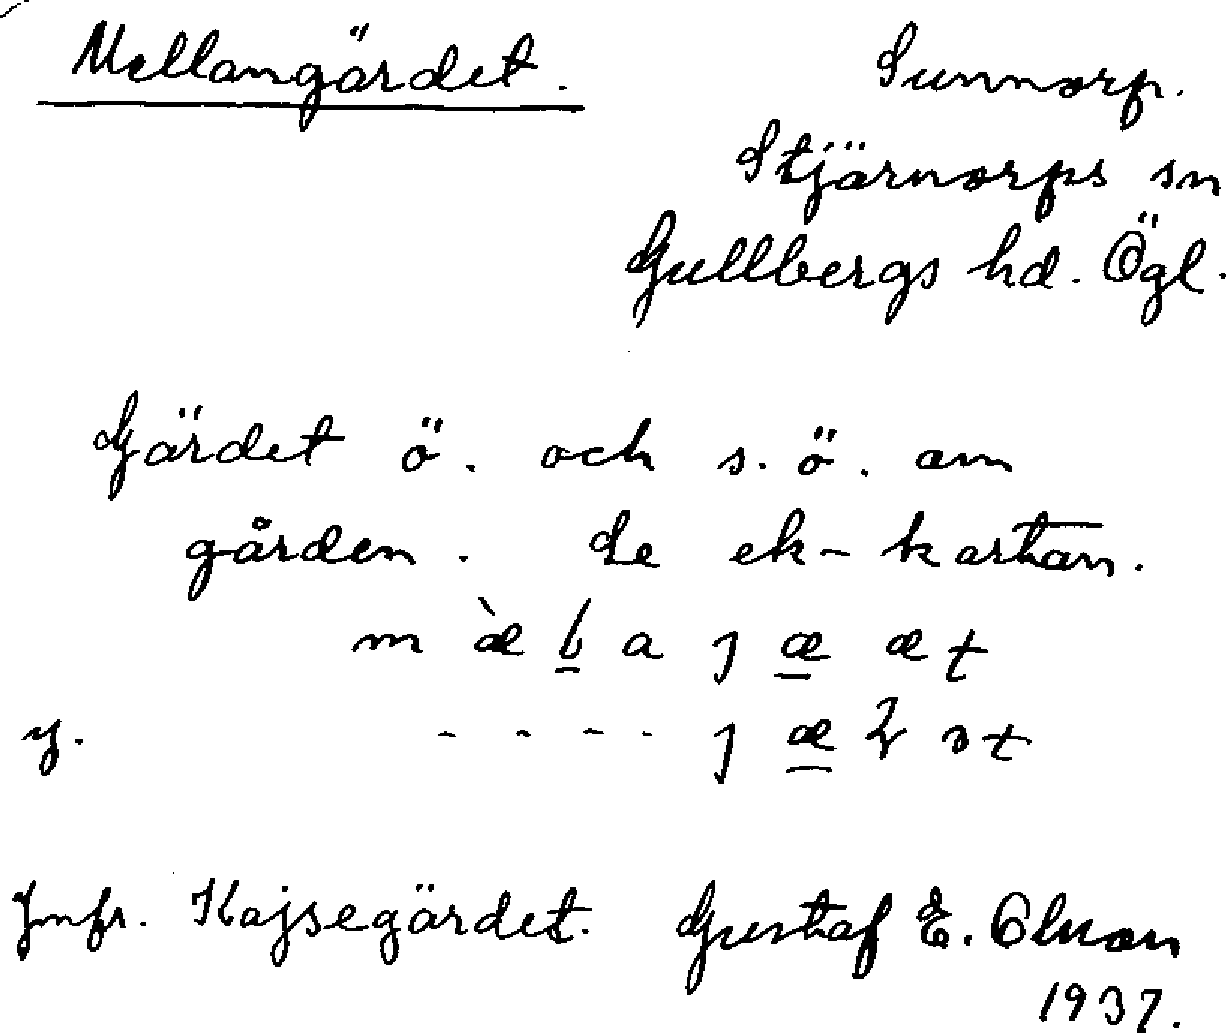 Mellangärdet. Sunnorp.
Stjärnorps sn
Gullbergs hd. Ögl.
Gärdet ö. och s.ö. om
gården. Se ek-kartan.
m æ̀ b̲ a ȷ æ̲ æ t
y. - - - - ȷ æ̲
Jmfr. Kajsegärdet. Gustaf E. Olson
1937.